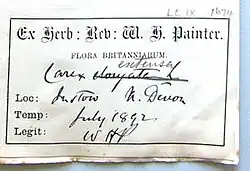 LC IX 1674
Ex Herb: Rev: W. H. Painter.
FLORA BRITANNIARUM.
extensa
Carex elongata L
Loc: Instow N. Devon
Temp: July 1892
Legit: W HP